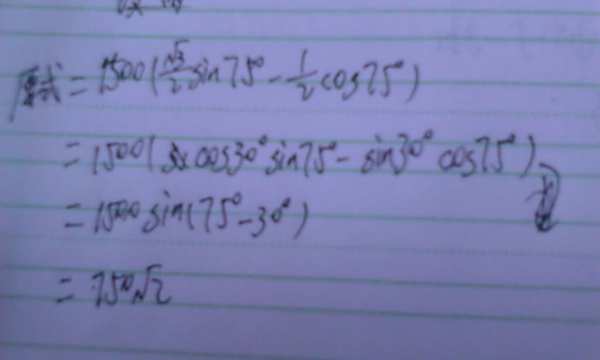 原式=1500(√3/2 sin75°-1/2 cos75°)
=1500(cos30°sin75°-sin30°cos75°)
=1500sin(75°-30°)
=750√2